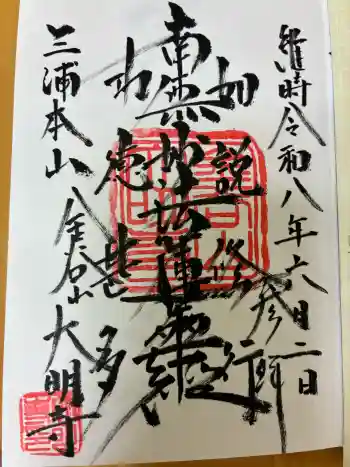 維時令和八年六月二日
参拝
如説修行
南無妙法蓮華経
其徳甚多
三浦本山
金谷山大明寺